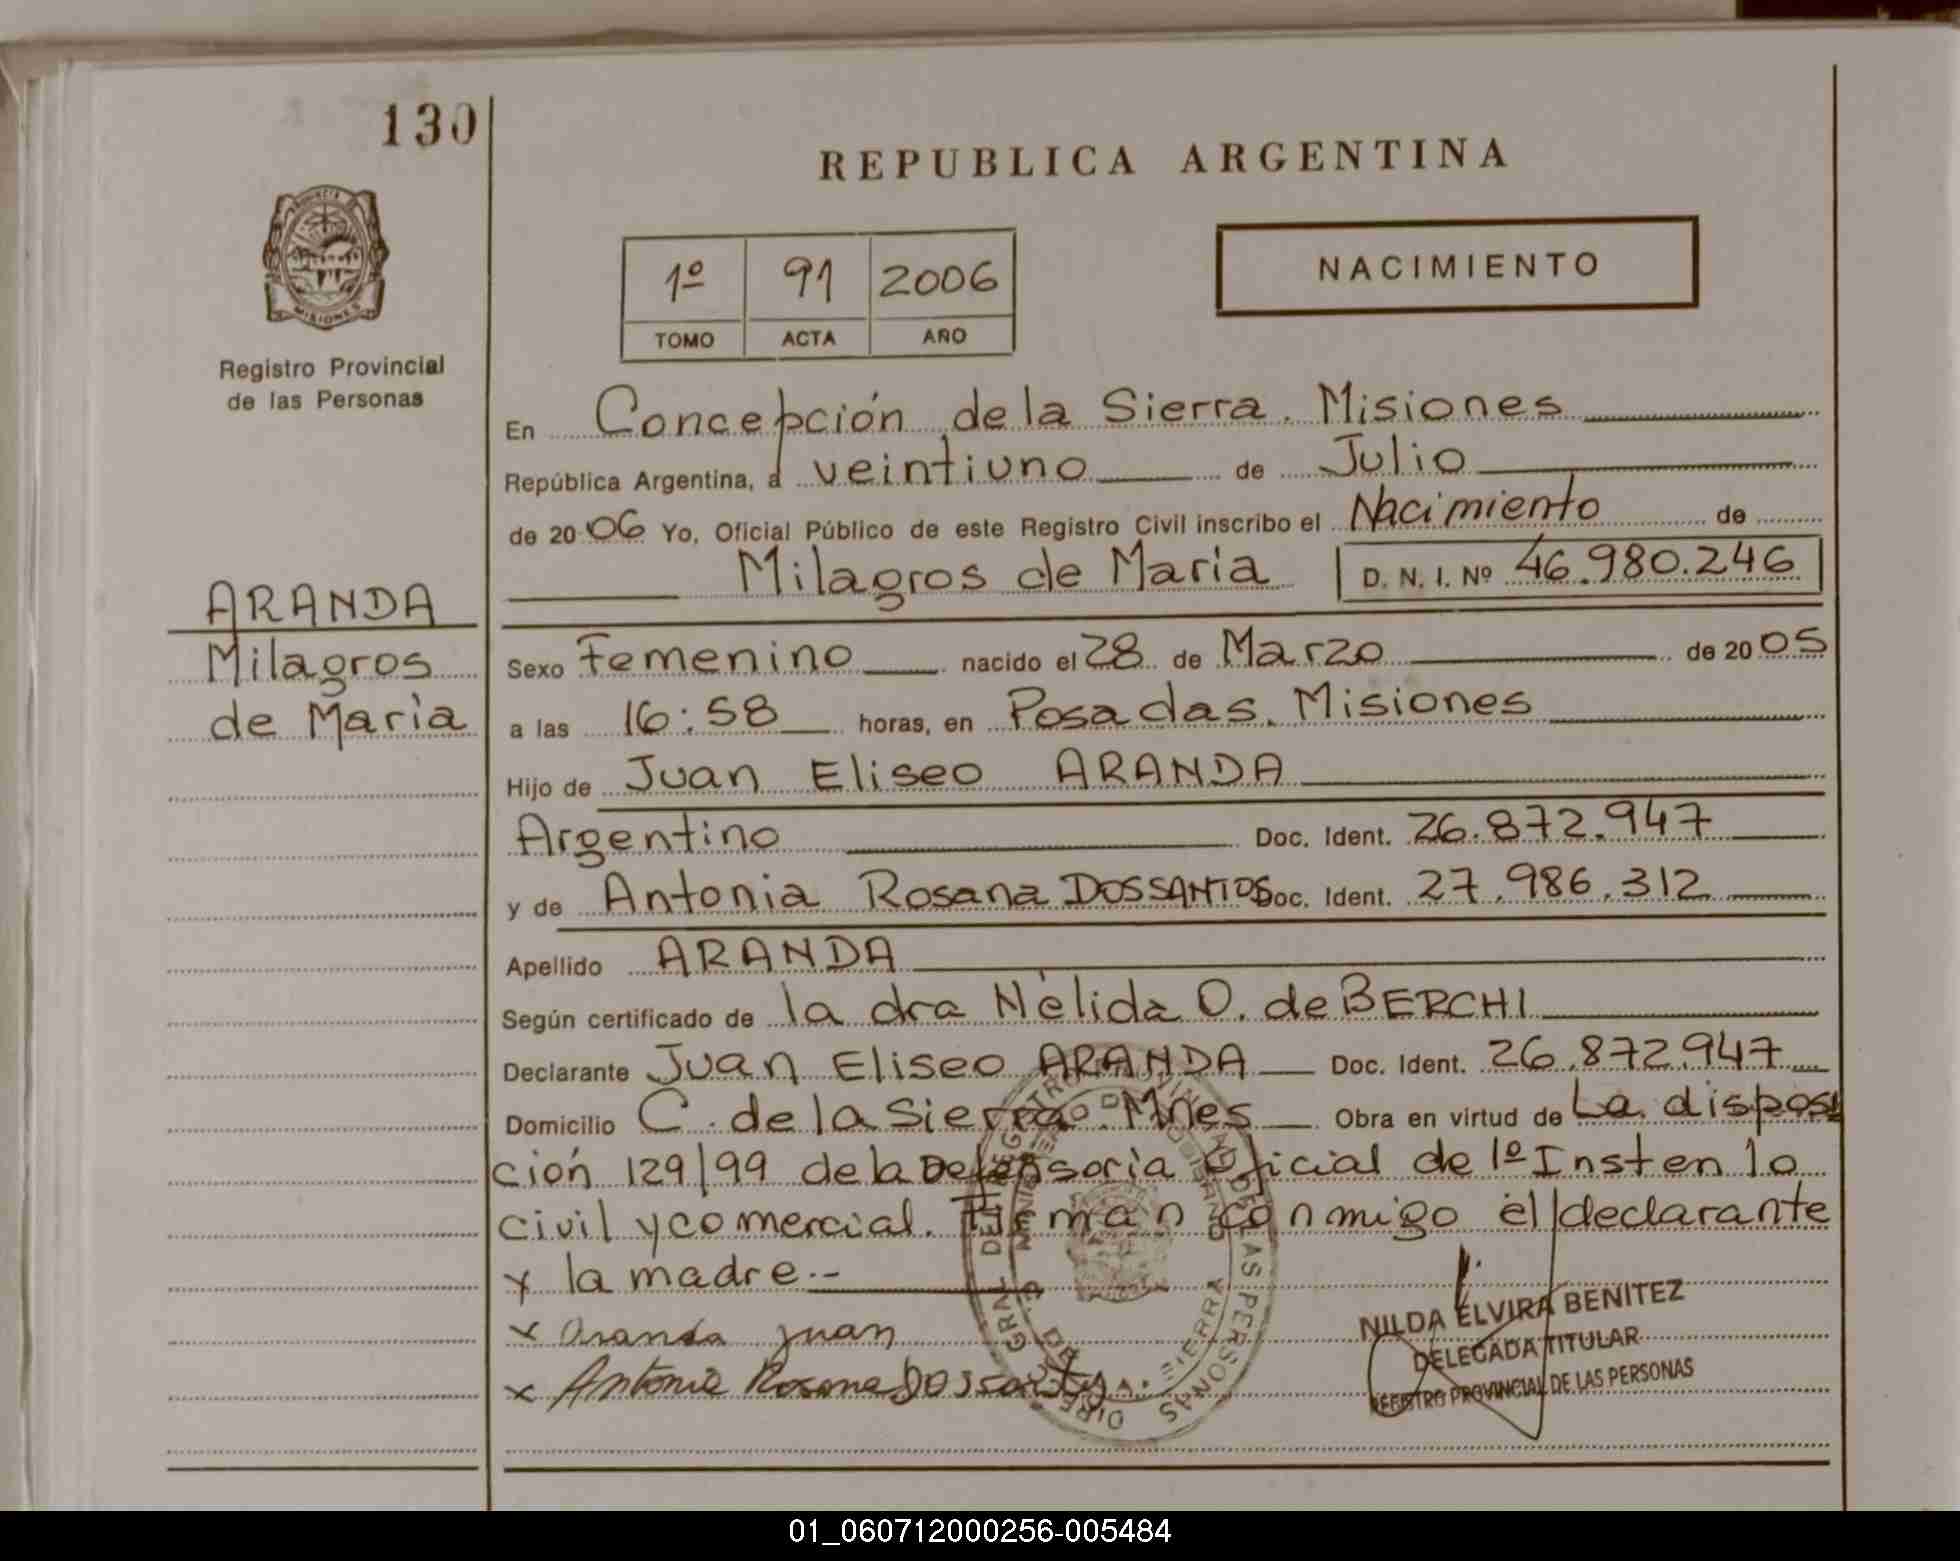 130
REPUBLICA ARGENTINA
PROVINCIA DE
MISIONES
Registro Provincial
de las Personas
1º 91 2006
TOMO ACTA AÑO
NACIMIENTO
En Concepción de la Sierra. Misiones
República Argentina, a veintiuno de Julio
de 2006 Yo, Oficial Público de este Registro Civil inscribo el Nacimiento de
Milagros de Maria D. N. I. Nº 46.980.246
ARANDA
Milagros
de Maria
Sexo Femenino nacido el 28 de Marzo de 2005
a las 16:58 horas, en Posadas. Misiones
Hijo de Juan Eliseo ARANDA
Argentino Doc. Ident. 26.872.947
y de Antonia Rosana DOSSANTOS Doc. Ident. 27.986.312
Apellido ARANDA
Según certificado de la dra Nélida O. de BERCHI
Declarante Juan Eliseo ARANDA Doc. Ident. 26.872.947
Domicilio C. de la Sierra. Mnes Obra en virtud de La disposi
ción 129/99 de la Defensoria Oficial de 1º Inst en lo
civil y comercial. Firman conmigo él declarante
y la madre.-
x Aranda Juan
x Antonia Rosana Dossantos
NILDA ELVIRA BENITEZ
DELEGADA TITULAR
REGISTRO PROVINCIAL DE LAS PERSONAS
01_060712000256-005484